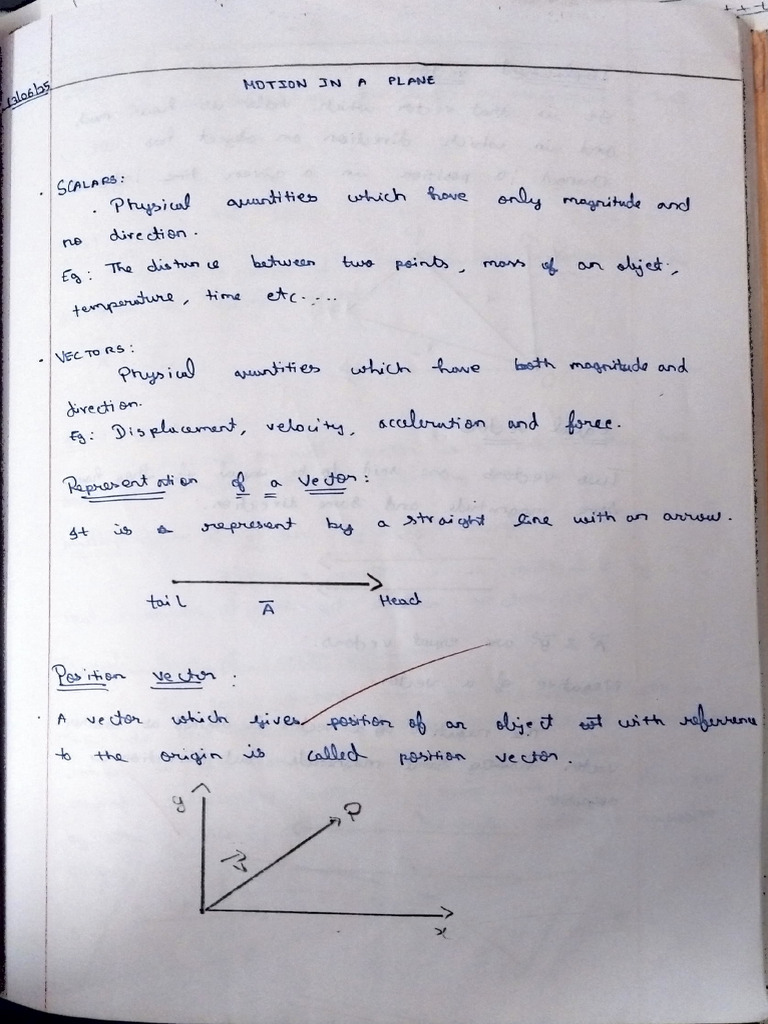 12/06/25
MOTION IN A PLANE
. SCALARS:
. Physical quantities which have only magnitude and
no direction.
Eg: The distance between two points, mass of an object,
temperature, time etc.....
. VECTORS:
Physical quantities which have both magnitude and
direction.
Eg: Displacement, velocity, acceleration and force.
Representation of a vector:
It is represent by a straight line with an arrow.
tail A̅ Head
Position vector:
. A vector which gives position of an object with referrence
to the origin is called position vector.
y
P
x